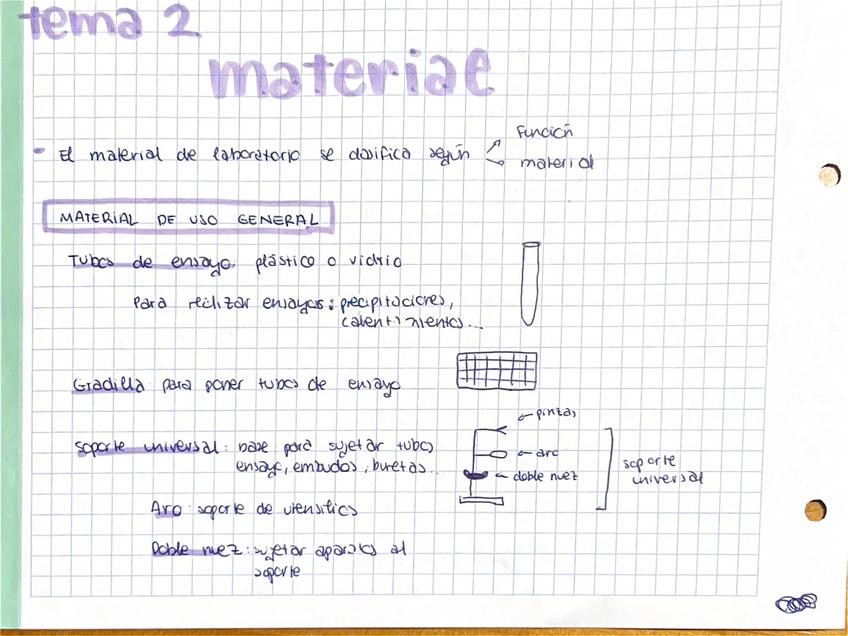 tema 2
material
- El material de laboratorio se clasifica según
Función
material
MATERIAL DE USO GENERAL
Tubos de ensayo: plástico o vidrio
Para realizar ensayos: precipitaciones,
calentamientos...
Gradilla para poner tubos de ensayo
Soporte universal: base para sujetar tubos
ensayo, embudos, buretas...
← pinzas
← aro
← doble nuez
soporte
universal
Aro: soporte de utensilios
Doble nuez: sujetar aparatos al
soporte